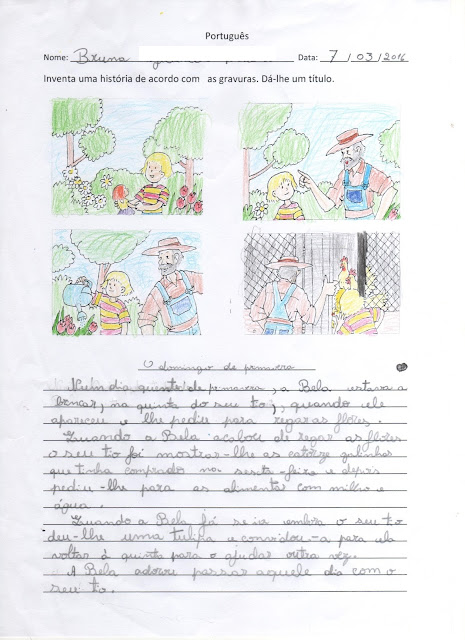 Português
Nome: Bruna Data: 7 / 03 / 2016
Inventa uma história de acordo com as gravuras. Dá-lhe um título.
O domingo de primavera
Num dia quente de primavera, a Bela estava a
brincar, na quinta do seu tio, quando ele
apareceu e lhe pediu para regar as flores.
Quando a Bela acabou de regar as flores
o seu tio foi mostrar-lhe as catorze galinhas
que tinha comprado na sexta-feira e depois
pediu-lhe para as alimentar com milho e
água.
Quando a Bela já se ia embora o seu tio
deu-lhe uma tulipa e convidou-a para ela
voltar à quinta para o ajudar outra vez.
A Bela adorou passar aquele dia com o
seu tio.